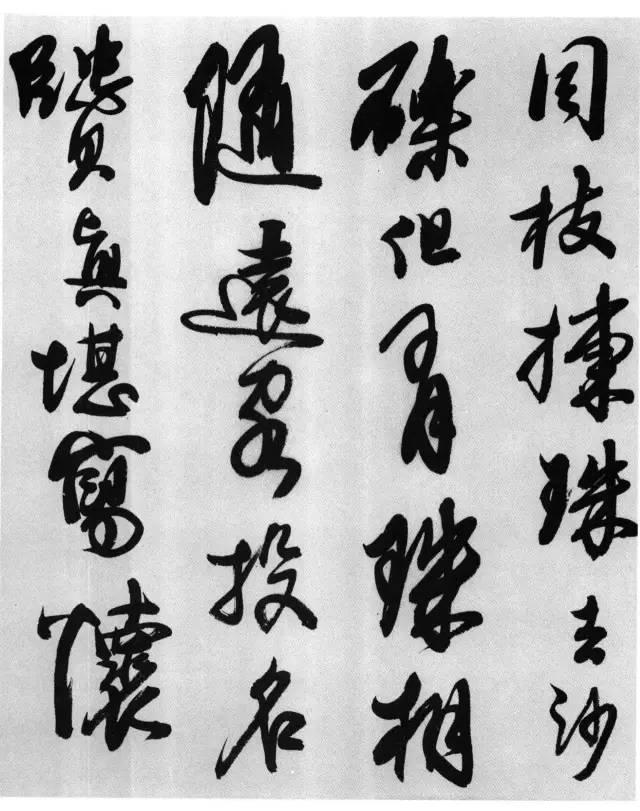 同枝揀珠去沙
礫但有珠相
隨遠客投名
賾真堪寫懷